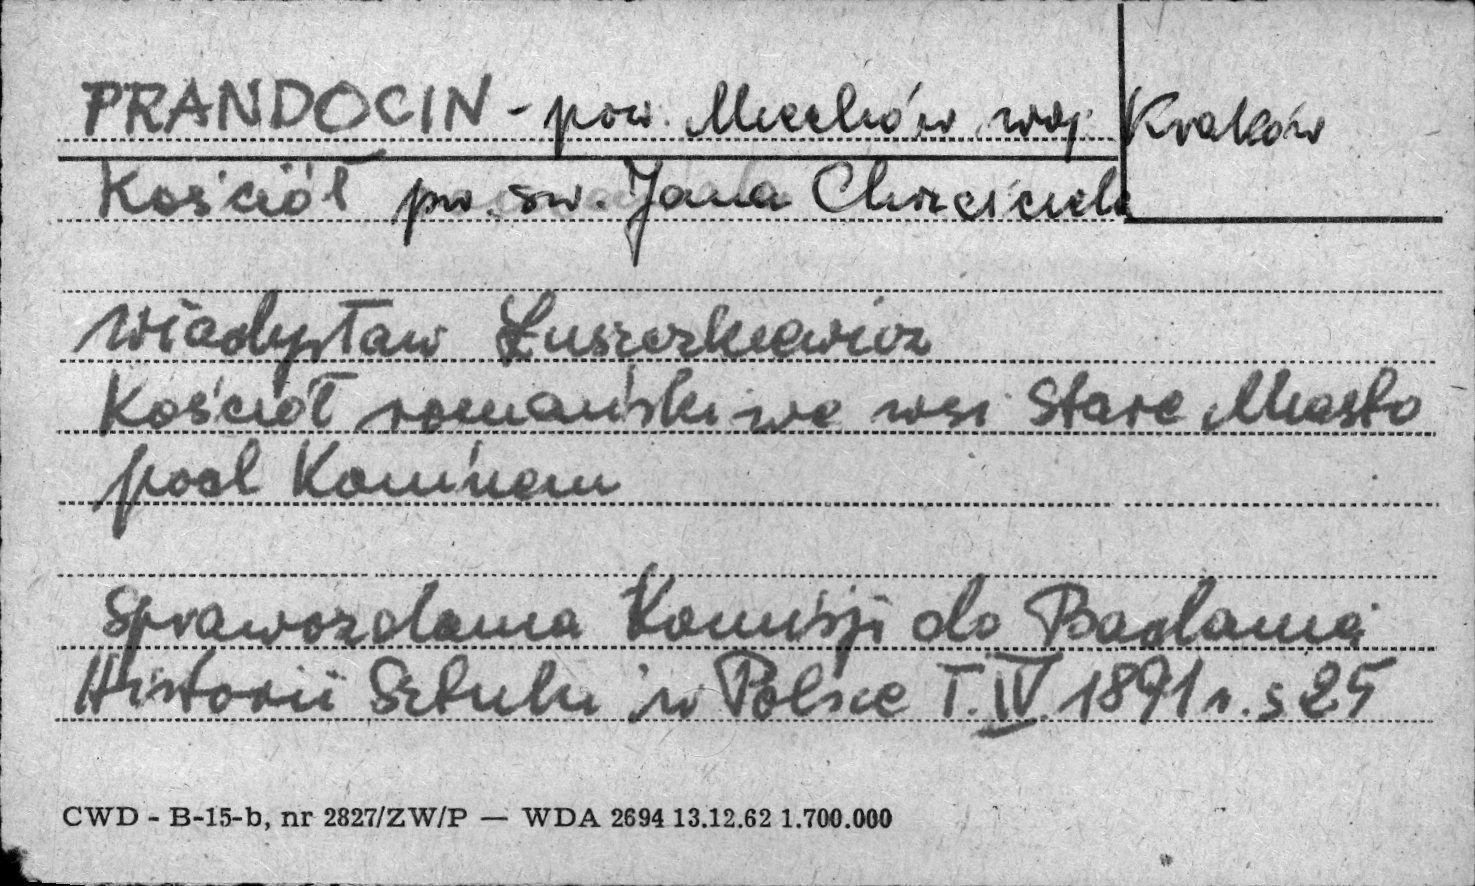 PRANDOCIN - pow. Miechów woj. Kraków
Kościół pw. św. Jana Chrzciciela
Władysław Łuszczkiewicz
Kościół romański we wsi Stare Miasto
pod Koninem
Sprawozdania Komisji do Badania
Historii Sztuki w Polsce T. IV. 1891 r. s 25
CWD - B-15-b, nr 2827/ZW/P — WDA 2694 13.12.62 1.700.000